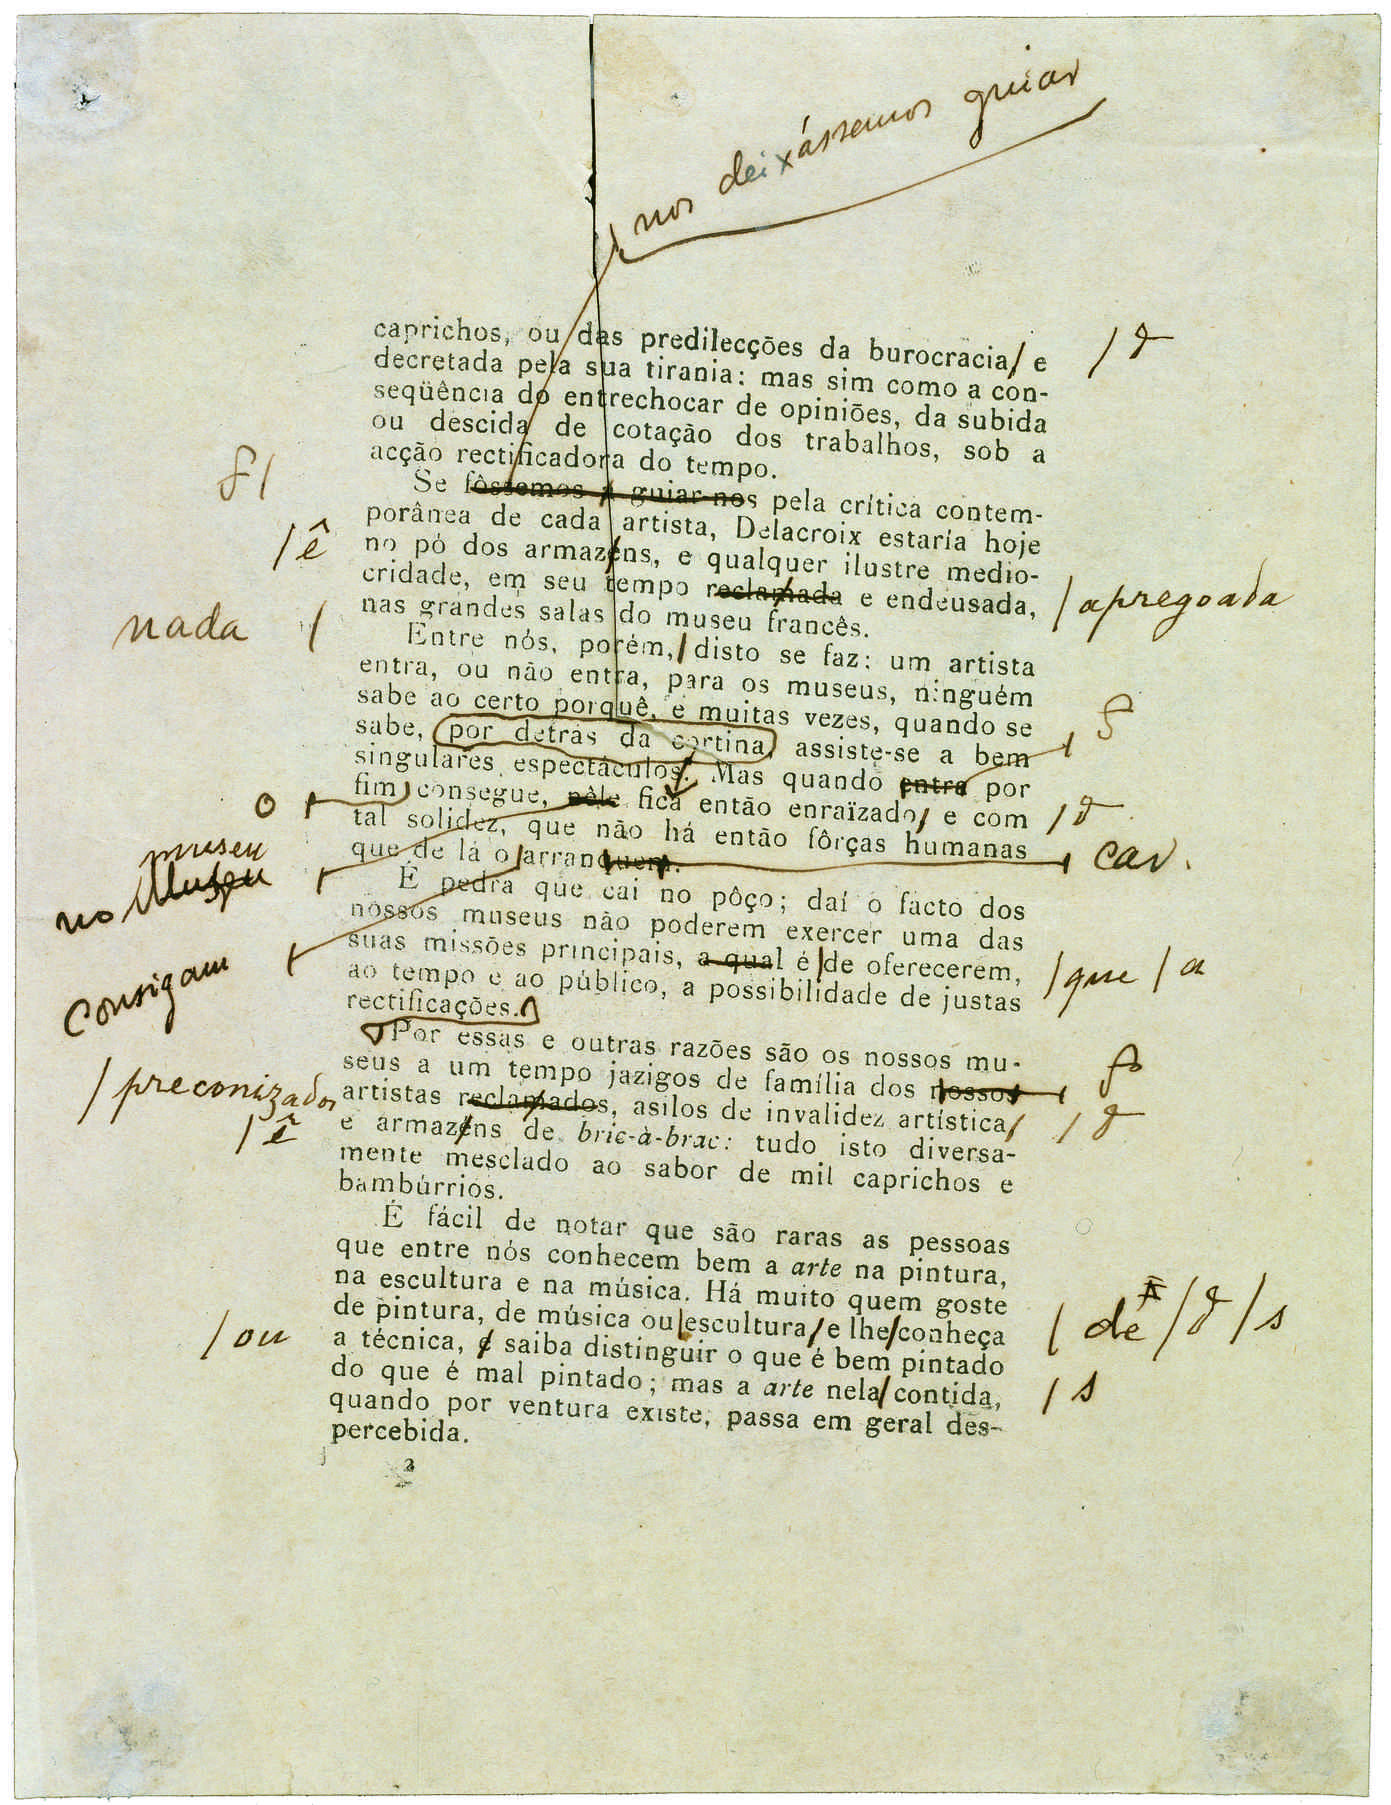 nos deixássemos guiar
caprichos, ou das predilecções da burocracia/ e
decretada pela sua tirania: mas sim como a con-
seqüência do entrechocar de opiniões, da subida
ou descida de cotação dos trabalhos, sob a
acção rectificadora do tempo.
Se fôssemos a guiar-nos pela crítica contem-
porânea de cada artista, Delacroix estaría hoje
/ ê
no pó dos armazens, e qualquer ilustre medio-
cridade, em seu tempo reclamada e endeusada,
/ apregoada
nas grandes salas do museu francês.
nada /
Entre nós, porém,/ disto se faz: um artista
entra, ou não entra, para os museus, ninguém
sabe ao certo porquê, e muitas vezes, quando se
sabe, por detrás da cortina, assiste-se a bem
singulares espectáculos. Mas quando entra por
o
fim, consegue, nêle fica então enraïzado/ e com
tal solidez, que não há então fôrças humanas
museu
no Museu
que de lá o/arranquem.
car.
É pedra que cai no pôço; daí o facto dos
nossos museus não poderem exercer uma das
consigam
suas missões principais, a qual é/de oferecerem,
/ que / a
ao tempo e ao público, a possibilidade de justas
rectificações.
Por essas e outras razões são os nossos mu-
seus a um tempo jazigos de família dos nossos
/ preconizados
artistas reclamados, asilos de invalidez artística/
/ ê
e armazens de bric-à-brac: tudo isto diversa-
mente mesclado ao sabor de mil caprichos e
bambúrrios.
É fácil de notar que são raras as pessoas
que entre nós conhecem bem a arte na pintura,
na escultura e na música. Há muito quem goste
de pintura, de música ou/escultura/e lhe/conheça
/ de / / s
/ ou
a técnica, e saiba distinguir o que é bem pintado
do que é mal pintado; mas a arte nela/contida,
/ s
quando por ventura existe, passa em geral des-
percebida.
2